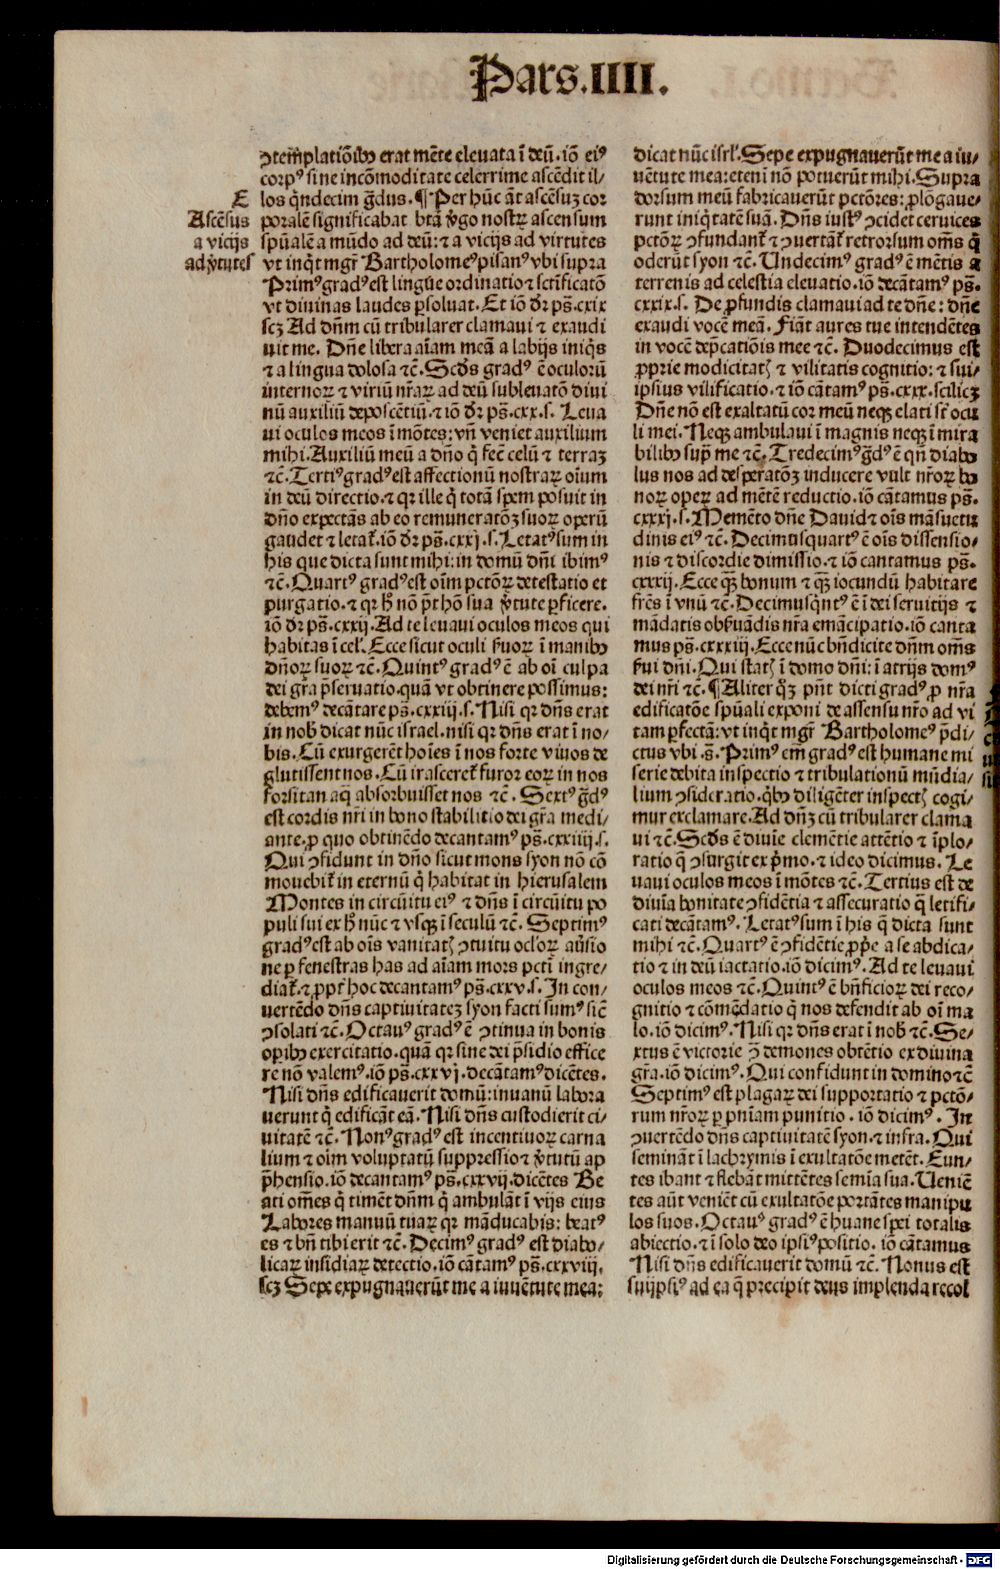 Pars.IIII.
ꝯtem̃platiõibꝫ erat mẽte eleuata ĩ deũ. iõ eiꝰ
corpꝰ sine incõmoditate celerrime ascẽdit il⸗
los q̃ndecim g̃dus. ¶ Per hũc ãt ascẽsuꝫ cor
poralẽ significabat btã ꝟgo nostrꝝ ascensum
spũalẽ a mũdo ad deũ: ⁊ a vicijs ad virtutes
vt inq̃t mgr̃ Bartholomeꝰ pisanꝰ vbi supra
Primꝰ gradꝰ est lingue ordinatio ⁊ sctificatõ
vt diuinas laudes ꝑsoluat. Et iõ dr̃ ps̃. cxix
scꝫ Ad dñm cũ tribularer clamaui ⁊ exaudi
uit me. Dñe libera aĩam meã a labijs iniq̃s
⁊ a lingua dolosa ⁊c̃. Scd̃s gradꝰ ẽ oculorũ
internoꝝ ⁊ viriũ nr̃aꝝ ad deũ subleuatõ diui
nũ auxiliũ deposcẽtiũ. ⁊ iõ dr̃ ps̃. cxx. s. Leua
ui oculos meos ĩ mõtes: vñ veniet auxilium
mihi. Auxiliũ meũ a dño q̃ fec̃ celũ ⁊ terraꝫ
⁊c̃. Tertiꝰ gradꝰ est affectionũ nostraꝝ oĩum
in deũ directio. ⁊ qꝛ ille q̃ totã spem posuit in
dño expectãs ab eo remuneratõꝫ suoꝝ operũ
gaudet ⁊ letat̃. iõ dr̃ ps̃. cxxj. s. Letatꝰ sum in
his que dicta sunt mihi: in domũ dñi ibimꝰ
⁊c̃. Quartꝰ gradꝰ est oĩm pctõꝝ detestatio et
purgatio. ⁊ qꝛ h̃ nõ p̃t hõ sua ꝟtute ꝑficere.
iõ dr̃ ps̃. cxxij. Ad te leuaui oculos meos qui
habitas ĩ cel̃. Ecce sicut oculi ẜuoꝝ ĩ manibꝫ
dñoꝝ suoꝝ ⁊c̃. Quintꝰ gradꝰ ẽ ab oĩ culpa
dei gr̃a p̃seruatio. quã vt obtinere possimus:
debemꝰ decãtare ps̃. cxxiij. s. Nisi qꝛ dñs erat
in nob̃ dicat nũc israel. nisi qꝛ dñs erat ĩ no⸗
bis. Cũ exurgerẽt hoĩes ĩ nos forte viuos de
glutissent nos. Cũ irasceret̃ furor eoꝝ in nos
forsitan aq̃ absorbuisset nos ⁊c̃. Sextꝰ g̃dꝰ
est cordis nr̃i in bono stabilitio dei gr̃a medi⸗
ante. ꝓ quo obtinẽdo decantamꝰ ps̃. cxxiiij. s.
Qui ꝯfidunt in dño sicut mons syon nõ cõ
mouebit̃ in eternũ q̃ habitat in hierusalem
Montes in circũitu eiꝰ ⁊ dñs ĩ circũitu po
puli sui ex h̃ nũc ⁊ vsqꝫ ĩ seculũ ⁊c̃. Septimꝰ
gradꝰ est ab oĩs vanitatꝭ ꝯtuitu ocl̃oꝝ auẽsio
ne ꝑ fenestras has ad aĩam mors pcti ingre⸗
diat̃. ⁊ ꝓpt̃ hoc decantamꝰ ps̃. cxxv. s. In con⸗
uertẽdo dñs captiuitateꝫ syon facti sumꝰ sic̃
ꝯsolati ⁊c̃. Octauꝰ gradꝰ ẽ ꝯtinua in bonis
oꝑibꝫ exercitatio. quã qꝛ sine dei p̃sidio effice
re nõ valemꝰ. iõ ps̃. cxxvj. decãtamꝰ dicẽtes.
Nisi dñs edificauerit domũ: inuanũ labora
uerunt q̃ edificãt eã. Nisi dñs custodierit ci⸗
uitatẽ ⁊c̃. Nonꝰ gradꝰ est incentiuoꝝ carna
lium ⁊ oĩm voluptatũ suppressio ⁊ ꝟtutũ ap
p̃hensio. iõ decantamꝰ ps̃. cxxvij. dicẽtes Be
ati om̃es q̃ timẽt dñm q̃ ambulãt ĩ vijs eius
Labores manuũ tuaꝝ qꝛ mãducabis: beatꝰ
es ⁊ bñ tibi erit ⁊c̃. Decimꝰ gradꝰ est diabo⸗
licaꝝ insidiaꝝ detectio. iõ cãtamꝰ ps̃. cxxviij.
scꝫ Sepe expugnauerũt me a iuuẽtute mea:
E
Ascẽsus
a vicijs
ad ꝟtutes
dicat nũc isrl̃. Sepe expugnauerũt me a iu⸗
uẽtute mea: eteni nõ potuerũt mihi. Supra
dorsum meũ fabricauerũt pctõres: ꝓlõgaue⸗
runt iniq̃tatẽ suã. Dñs iustꝰ ꝯcidet ceruices
pctõꝝ ꝯfundant̃ ⁊ ꝯuertãt̃ retrorsum om̃s q̃
oderũt syon ⁊c̃. Undecimꝰ gradꝰ ẽ mẽtis a
terrenis ad celestia eleuatio. iõ decãtamꝰ ps̃.
cxxix. s. De ꝓfundis clamaui ad te dñe: dñe
exaudi vocẽ meã. Fiãt aures tue intendẽtes
in vocẽ dep̃catiõis mee ⁊c̃. Duodecimus est
ꝓprie modicitatꝭ ⁊ vilitatis cognitio: ⁊ sui⸗
ipsius vilificatio. ⁊ iõ cãtamꝰ ps̃. cxxx. scilicꝫ
Dñe nõ est exaltatũ cor meũ neqꝫ elati st̃ ocu
li mei. Neqꝫ ambulaui ĩ magnis neqꝫ ĩ mira
bilibꝫ sup̃ me ⁊c̃. Tredecimꝰ g̃dꝰ ẽ qñ diabo
lus nos ad desperatõꝫ inducere vult nr̃oꝝ bo
noꝝ operꝝ ad mẽtẽ reductio. iõ cãtamus ps̃.
cxxxj. s. Memẽto dñe Dauid ⁊ oĩs mãsuetu
dinis eiꝰ ⁊c̃. Decimusquartꝰ ẽ oĩs dissensio⸗
nis ⁊ discordie dimissio. ⁊ iõ cantamus ps̃.
cxxxij. Ecce qꝫ̃ bonum ⁊ qꝫ̃ iocundũ habitare
fr̃es ĩ vnũ ⁊c̃. Decimusq̃ntꝰ ẽ ĩ dei seruitijs ⁊
mãdatis obẜuãdis nr̃a emãcipatio. iõ canta
mus ps̃. cxxxiij. Ecce nũc bñdicite dñm om̃s
ẜui dñi. Qui statꝭ ĩ domo dñi: ĩ atrijs domꝰ
dei nr̃i ⁊c̃. ¶ Aliter q̃ꝫ pñt dicti gradꝰ ꝓ nr̃a
edificatõe spũali exponi de assensu nr̃o ad vi
tam ꝑfectã: vt inq̃t mgr̃ Bartholomeꝰ p̃di⸗
ctus vbi. s̃. Primꝰ em̃ gradꝰ est humane mi
serie debita inspectio ⁊ tribulationũ mũdia⸗
lium ꝯsideratio. q̃bꝫ diligẽter inspectꝭ cogi⸗
mur exclamare. Ad dñꝫ cũ tribularer clama
ui ⁊c̃. Scd̃s ẽ diuĩe clemẽtie attẽtio ⁊ ĩplo⸗
ratio q̃ ꝯsurgit ex p̃mo. ⁊ ideo dicimus. Le
uaui oculos meos ĩ mõtes ⁊c̃. Tertius est de
diuĩa bonitate ꝯfidẽtia ⁊ assecuratio q̃ letifi⸗
cati decãtamꝰ. Letatꝰ sum ĩ his q̃ dicta sunt
mihi ⁊c̃. Quartꝰ ẽ ꝯfidẽtie ꝓp̃e a se abdica⸗
tio ⁊ in deũ iactatio. iõ dicimꝰ. Ad te leuaui
oculos meos ⁊c̃. Quintꝰ ẽ bñficioꝝ dei reco⸗
gnitio ⁊ cõmẽdatio q̃ nos defendit ab oĩ ma
lo. iõ dicimꝰ. Nisi qꝛ dñs erat ĩ nob̃ ⁊c̃. Se⸗
xtus ẽ victorie ꝯ̃ demones obtẽtio ex diuina
gr̃a. iõ dicimꝰ. Qui confidunt in domino ⁊c̃
Septimꝰ est plagaꝝ dei supportatio ⁊ pctõ⸗
rum nr̃oꝝ ꝑ pñiam punitio. iõ dicimꝰ. In
ꝯuertẽdo dñs captiuitatẽ syon. ⁊ infra. Qui
seminãt ĩ lachrymis ĩ exultatõe metẽt. Eun⸗
tes ibant ⁊ flebãt mittẽtes semĩa sua. Ueniẽ
tes aũt veniẽt cũ exultatõe portãtes manipu
los suos. Octauꝰ gradꝰ ẽ hũane spei totalis
abiectio. ⁊ ĩ solo deo ipsiꝰ positio. iõ cãtamus
Nisi dñs edificauerit domũ ⁊c̃. Nonus est
suijpsiꝰ ad ea q̃ precipit deus implenda recol
Digitalisierung gefördert durch die Deutsche Forschungsgemeinschaft - DFG